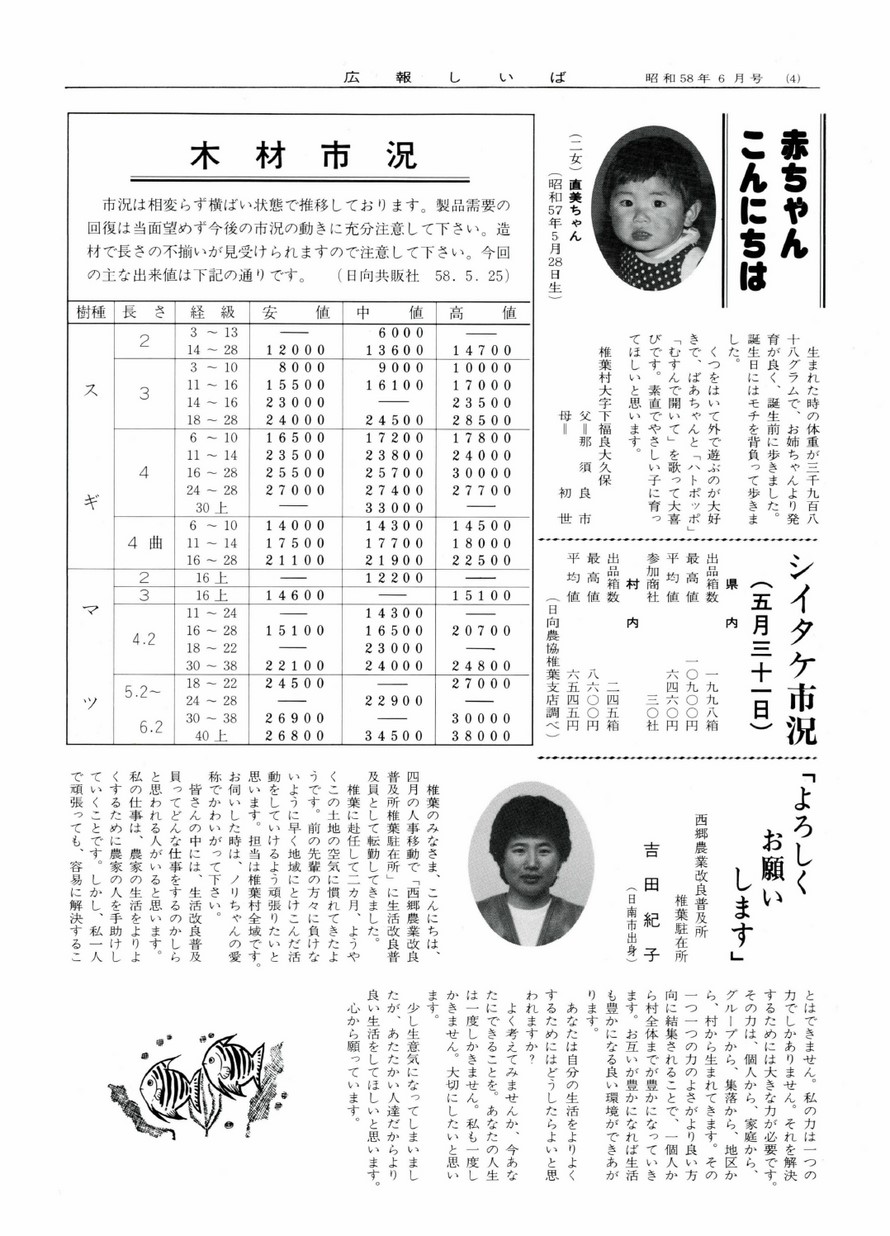 広報しいば 昭和58年6月号 (4)
赤ちゃん
こんにちは
(二女) 直美ちゃん
(昭和57年5月28日生)
生まれた時の体重が三千九百八
十八グラムで、お姉ちゃんより発
育が良く、誕生前に歩きました。
誕生日にはモチを背負って歩きま
した。
くつをはいて外で遊ぶのが大好
きで、ばあちゃんと「ハトポッポ」
「むすんで開いて」を歌って大喜
びです。素直でやさしい子に育っ
てほしいと思います。
椎葉村大字下福良大久保
父=那須良市
母=初世
木材市況
市況は相変らず横ばい状態で推移しております。製品需要の
回復は当面望めず今後の市況の動きに充分注意して下さい。造
材で長さの不揃いが見受けられますので注意して下さい。今回
の主な出来値は下記の通りです。 (日向共販社 58.5.25)
樹種 長さ 経級 安値 中値 高値
スギ 2 3～13 ― 6000 ―
14～28 12000 13600 14700
3 3～10 8000 9000 10000
11～16 15500 16100 17000
14～16 23000 ― 23500
18～28 24000 24500 28500
4 6～10 16500 17200 17800
11～14 23500 23800 24000
16～28 25500 25700 30000
24～28 27000 27400 27700
30上 ― 33000 ―
4曲 6～10 14000 14300 14500
11～14 17500 17700 18000
16～28 21100 21900 22500
マツ 2 16上 ― 12200 ―
3 16上 14600 ― 15100
4.2 11～24 ― 14300 ―
16～28 15100 16500 20700
18～22 ― 23000 ―
30～38 22100 24000 24800
5.2～6.2 18～22 24500 ― 27000
24～28 ― 22900 ―
30～38 26900 ― 30000
40上 26800 34500 38000
シイタケ市況
(五月三十一日)
県内
出品箱数 一九九八箱
最高値 一〇九〇〇円
平均値 六四六〇円
参加商社 三〇社
村内
出品箱数 二四五箱
最高値 八六〇〇円
平均値 六五四五円
(日向農協椎葉支店調べ)
「よろしく
お願い
します」
西郷農業改良普及所
椎葉駐在所
吉田紀子
(日南市出身)
椎葉のみなさま、こんにちは、
四月の人事移動で「西郷農業改良
普及所椎葉駐在所」に生活改良普
及員として転勤してきました。
椎葉に赴任して二カ月、ようや
くこの土地の空気に慣れてきたよ
うです。前の先輩の方々に負けな
いように早く地域にとけこんだ活
動をしていけるよう頑張りたいと
思います。担当は椎葉村全域です。
お伺いした時は、ノリちゃんの愛
称でかわいがって下さい。
皆さんの中には、生活改良普及
員ってどんな仕事をするのかしら
と思われる人がいると思います。
私の仕事は、農家の生活をよりよ
くするために農家の人を手助けし
ていくことです。しかし、私一人
で頑張っても、容易に解決するこ
とはできません。私の力は一つの
力でしかありません。それを解決
するためには大きな力が必要です。
その力は、個人から、家庭から、
グループから、集落から、地区か
ら、村から生まれてきます。その
一つ一つの力のよさがより良い方
向に結集されることで、一個人か
ら村全体までが豊かになっていき
ます。お互いが豊かになれば生活
も豊かになる良い環境ができあが
ります。
あなたは自分の生活をよりよく
するためにはどうしたらよいと思
われますか?
よく考えてみませんか、今あな
たにできることを。あなたの人生
は一度しかきません。私も一度し
かきません。大切にしたいと思い
ます。
少し生意気になってしまいまし
たが、あたたかい人達だからより
良い生活をしてほしいと思います。
心から願っています。